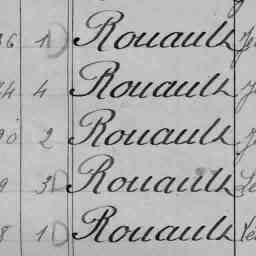 36 1 D Rouault
74 4 Rouault
90 2 Rouault
9 3 D Rouault
8 1 D Rouault